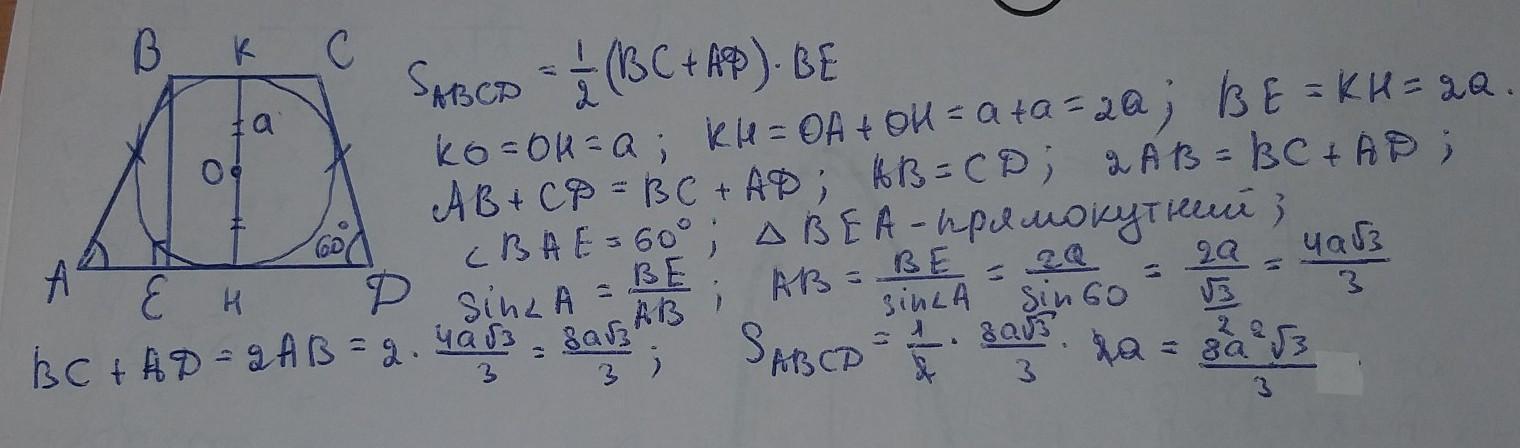 B K C
a
O
60°
A E H D
S_ABCD = 1/2 (BC + AD) · BE
KO = OH = a; KH = OA + OH = a + a = 2a; BE = KH = 2a.
AB + CD = BC + AD; AB = CD; 2AB = BC + AD;
∠BAE = 60°; △BEA - прямокутний;
sin∠A = BE/AB; AB = BE/sin∠A = 2a/sin60 = 2a/(√3/2) = 4a√3/3
BC + AD = 2AB = 2 · 4a√3/3 = 8a√3/3; S_ABCD = 1/2 · 8a√3/3 · 2a = 8a²√3/3